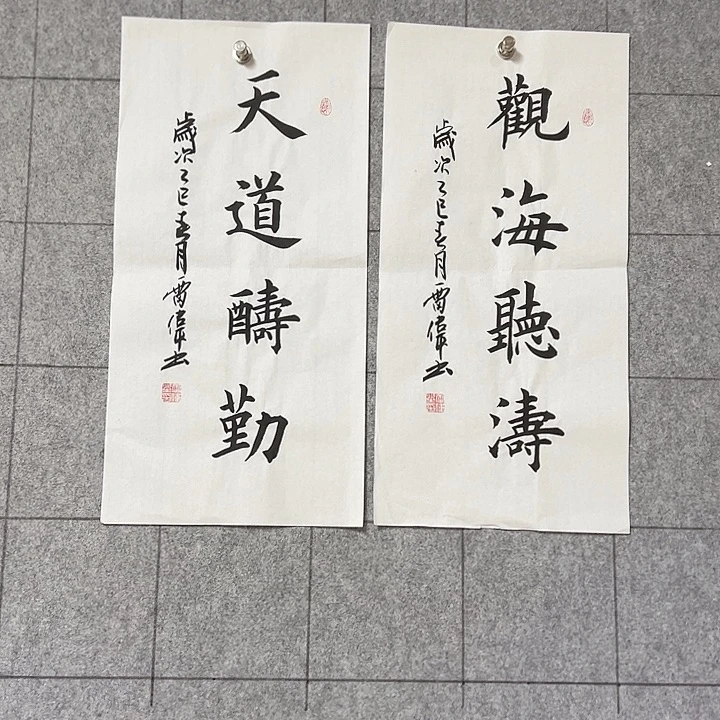 觀海聽濤
歲次乙巳春月雷偉書
天道酬勤
歲次乙巳春月雷偉書